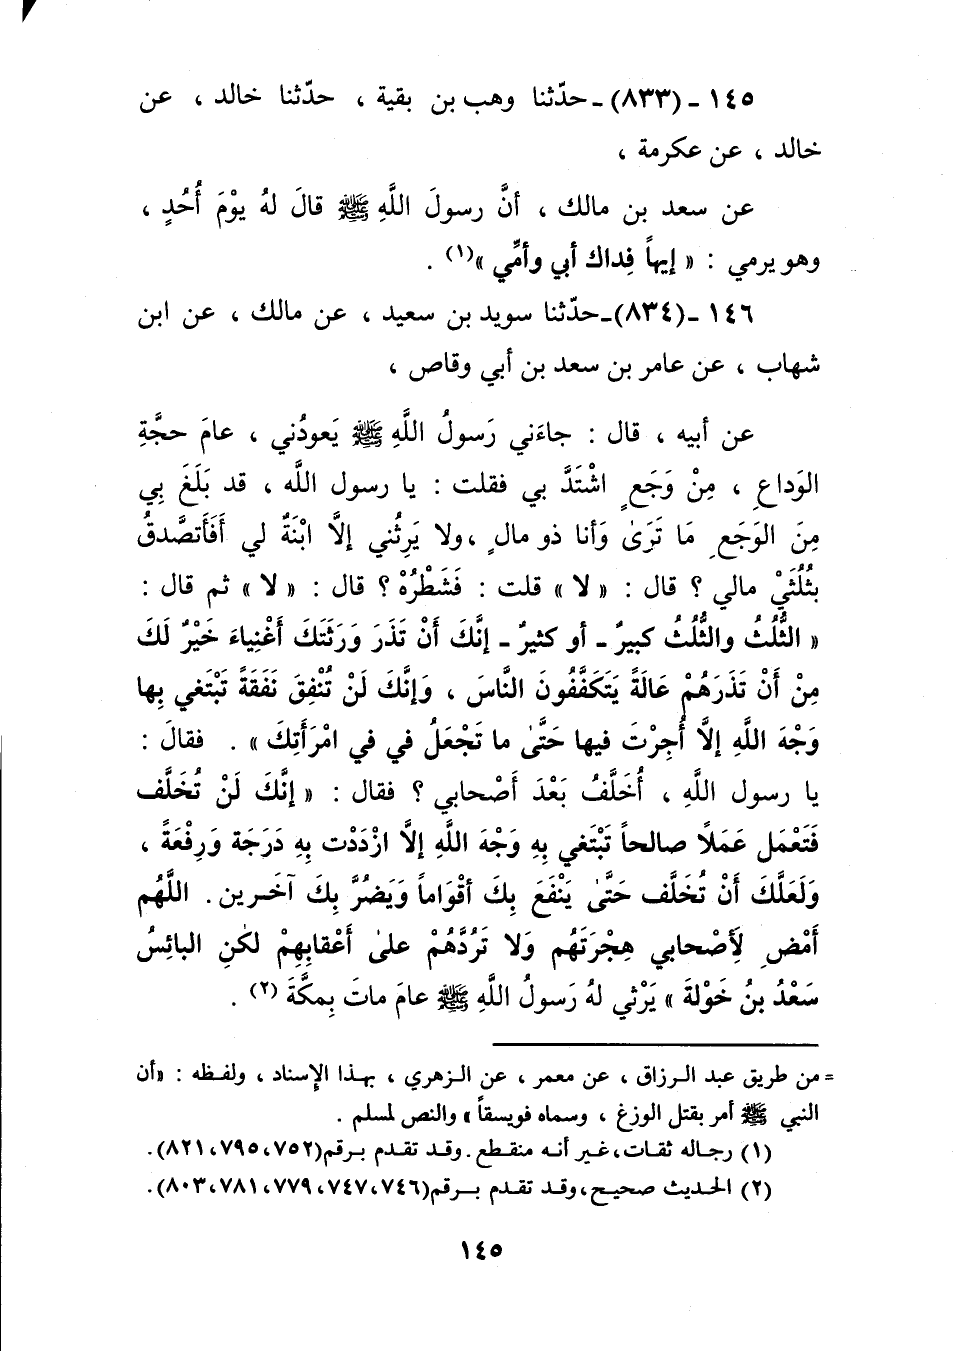 ١٤٥ - (٨٣٣) - حدّثنا وهب بن بقية ، حدّثنا خالد ، عن
خالد ، عن عكرمة ،
عن سعد بن مالك ، أنَّ رسولَ اللَّهِ ﷺ قالَ لهُ يوْمَ أُحُدٍ ،
وهو يرمي : « إيهاً فِداك أبي وأمِّي »(١) .
١٤٦ - (٨٣٤) - حدّثنا سويد بن سعيد ، عن مالك ، عن ابن
شهاب ، عن عامر بن سعد بن أبي وقاص ،
عن أبيه ، قال : جاءَني رَسولُ اللَّهِ ﷺ يَعودُني ، عامَ حجَّةِ
الوَداعِ ، مِنْ وَجَعٍ اشْتَدَّ بي فقلت : يا رسول اللَّه ، قد بَلَغَ بِي
مِنَ الوَجَعِ مَا تَرَىٰ وَأنا ذو مالٍ ، ولا يَرِثُني إلَّا ابْنَةٌ لي أَفَأَتصَّدقُ
بِثُلُثَيْ مالي ؟ قال : « لا » قلت : فَشَطْرُهْ ؟ قال : « لا » ثم قال :
« الثُّلُثُ والثُّلُثُ كبيرٌ - أو كثيرٌ - إنَّكَ أَنْ تَذَرَ وَرَثَتَكَ أَغْنِياءَ خَيْرٌ لَكَ
مِنْ أَنْ تَذَرَهُمْ عَالَةً يَتَكَفَّفُونَ النَّاسَ ، وَإنَّكَ لَنْ تُنْفِقَ نَفَقَةً تَبْتَغي بِها
وَجْهَ اللَّهِ إلَّا أُجِرْتَ فيها حَتَّىٰ ما تَجْعَلُ في في امْرَأَتِكَ » . فقالَ :
يا رسول اللَّهِ ، أُخَلَّفُ بَعْدَ أَصْحابي ؟ فقال : « إنَّكَ لَنْ تُخَلَّف
فَتَعْمَل عَمَلًا صالحاً تَبْتَغي بِهِ وَجْهَ اللَّهِ إلَّا ازْدَدْت بِهِ دَرَجَة وَرِفْعَةً ،
وَلَعَلَّكَ أَنْ تُخَلَّف حَتَّىٰ يَنْفَعَ بِكَ أقْوَاماً وَيَضُرَّ بِكَ آخَـرين . اللَّهُم
أَمْضِ لِأَصْحابي هِجْرَتَهُم وَلا تَرُدَّهُمْ علىٰ أَعْقابِهِمْ لكنِ البائِسُ
سَعْدُ بنُ خَوْلةَ » يَرْثي لهُ رَسولُ اللَّهِ ﷺ عامَ ماتَ بِمكَّةَ (٢) .
= من طريق عبد الرزاق ، عن معمر ، عن الزهري ، بهذا الإسناد ، ولفظه : «أن
النبي ﷺ أمر بقتل الوزغ ، وسماه فويسقاً » والنص لمسلم .
(١) رجاله ثقات ، غير أنه منقطع . وقد تقدم برقم (٧٥٢ ، ٧٩٥ ، ٨٢١) .
(٢) الحديث صحيح ، وقد تقدم برقم (٧٤٦ ، ٧٤٧ ، ٧٧٩ ، ٧٨١ ، ٨٠٣) .
١٤٥